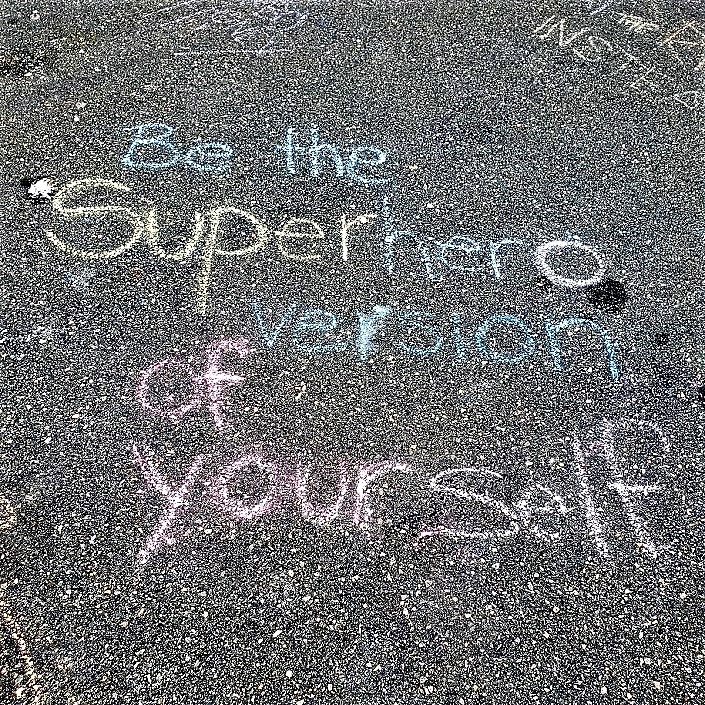 Be the
Superhero
version
of
yourself